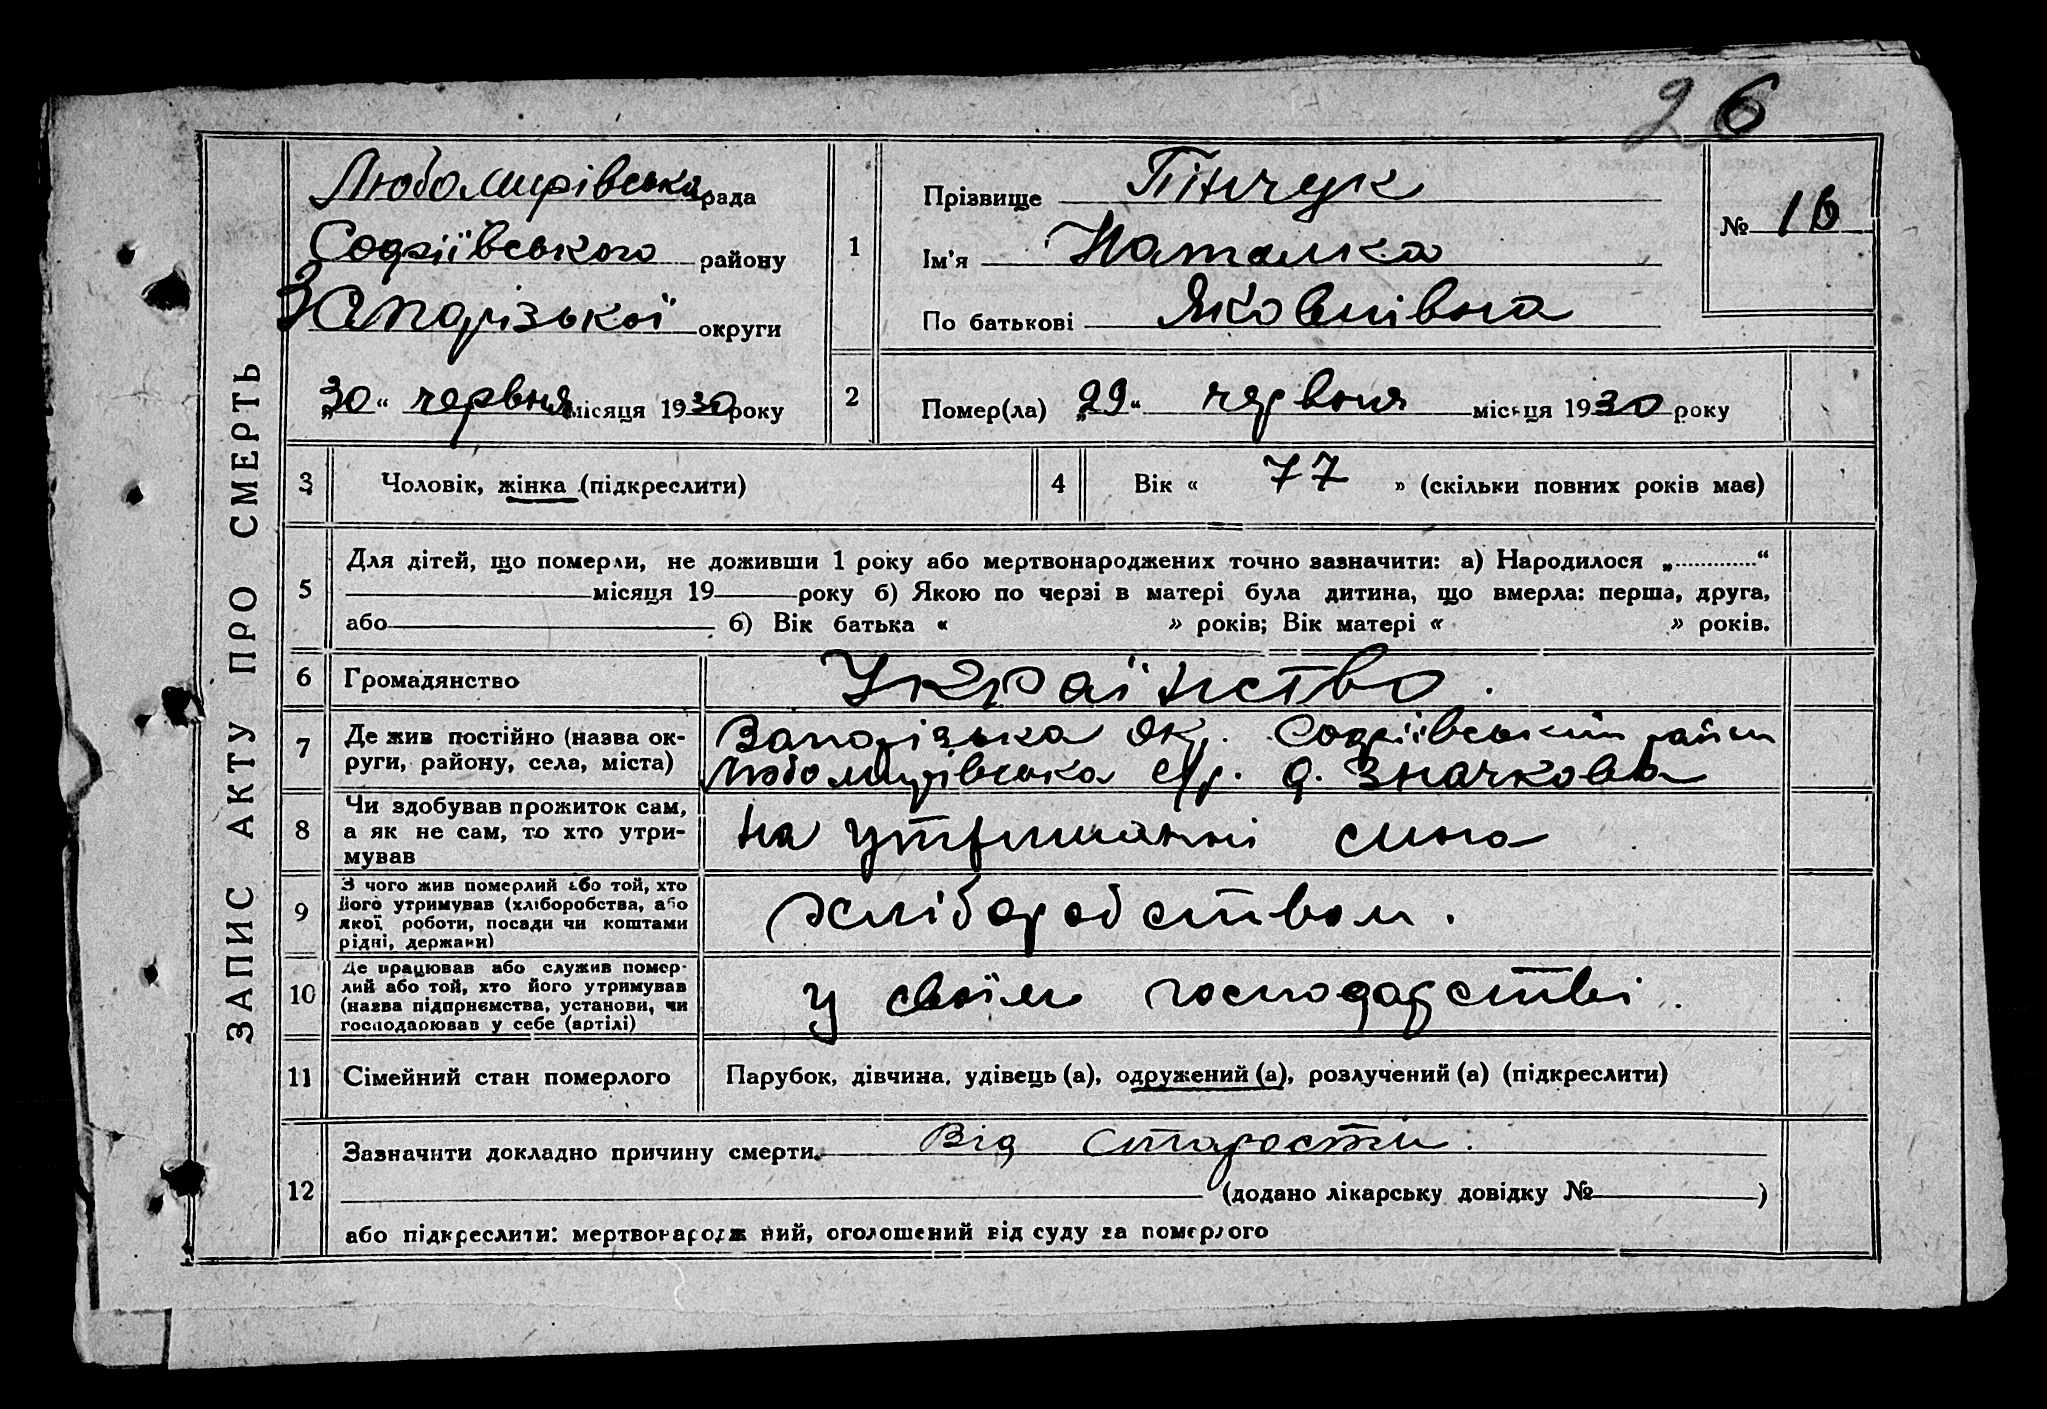 26
ЗАПИС АКТУ ПРО СМЕРТЬ
Любомирівська рада
Софіївського району
Запорізької округи
„30“ червня місяця 1930 року
1
Прізвище Пінчук
Ім'я Наталка
По батькові Яковлівна
№ 16
2
Помер(ла) „29“ червня місяця 1930 року
3
Чоловік, жінка (підкреслити)
4
Вік « 77 » (скільки повних років має)
5
Для дітей, що померли, не доживши 1 року або мертвонароджених точно зазначити: а) Народилося „.............“
місяця 19 року б) Якою по черзі в матері була дитина, що вмерла: перша, друга,
або б) Вік батька « » років; Вік матері « » років.
6
Громадянство
Українство.
7
Де жив постійно (назва ок-
руги, району, села, міста)
Запорізька окр. Софіївський район
Любомирівська с/р. д. Значково
8
Чи здобував прожиток сам,
а як не сам, то хто утри-
мував
на утриманні сина
9
З чого жив померлий або той, хто
його утримував (хліборобства, або
якої роботи, посади чи коштами
рідні, держави)
хліборобством.
10
Де працював або служив помер-
лий або той, хто його утримував
(назва підприємства, установи, чи
господарював у себе (артілі)
у своїм господарстві.
11
Сімейний стан померлого
Парубок, дівчина, удівець (а), одружений (а), розлучений (а) (підкреслити)
12
Зазначити докладно причину смерти. Від старости.
(додано лікарську довідку № )
або підкреслити: мертвонароджений, оголошений від суду за померлого